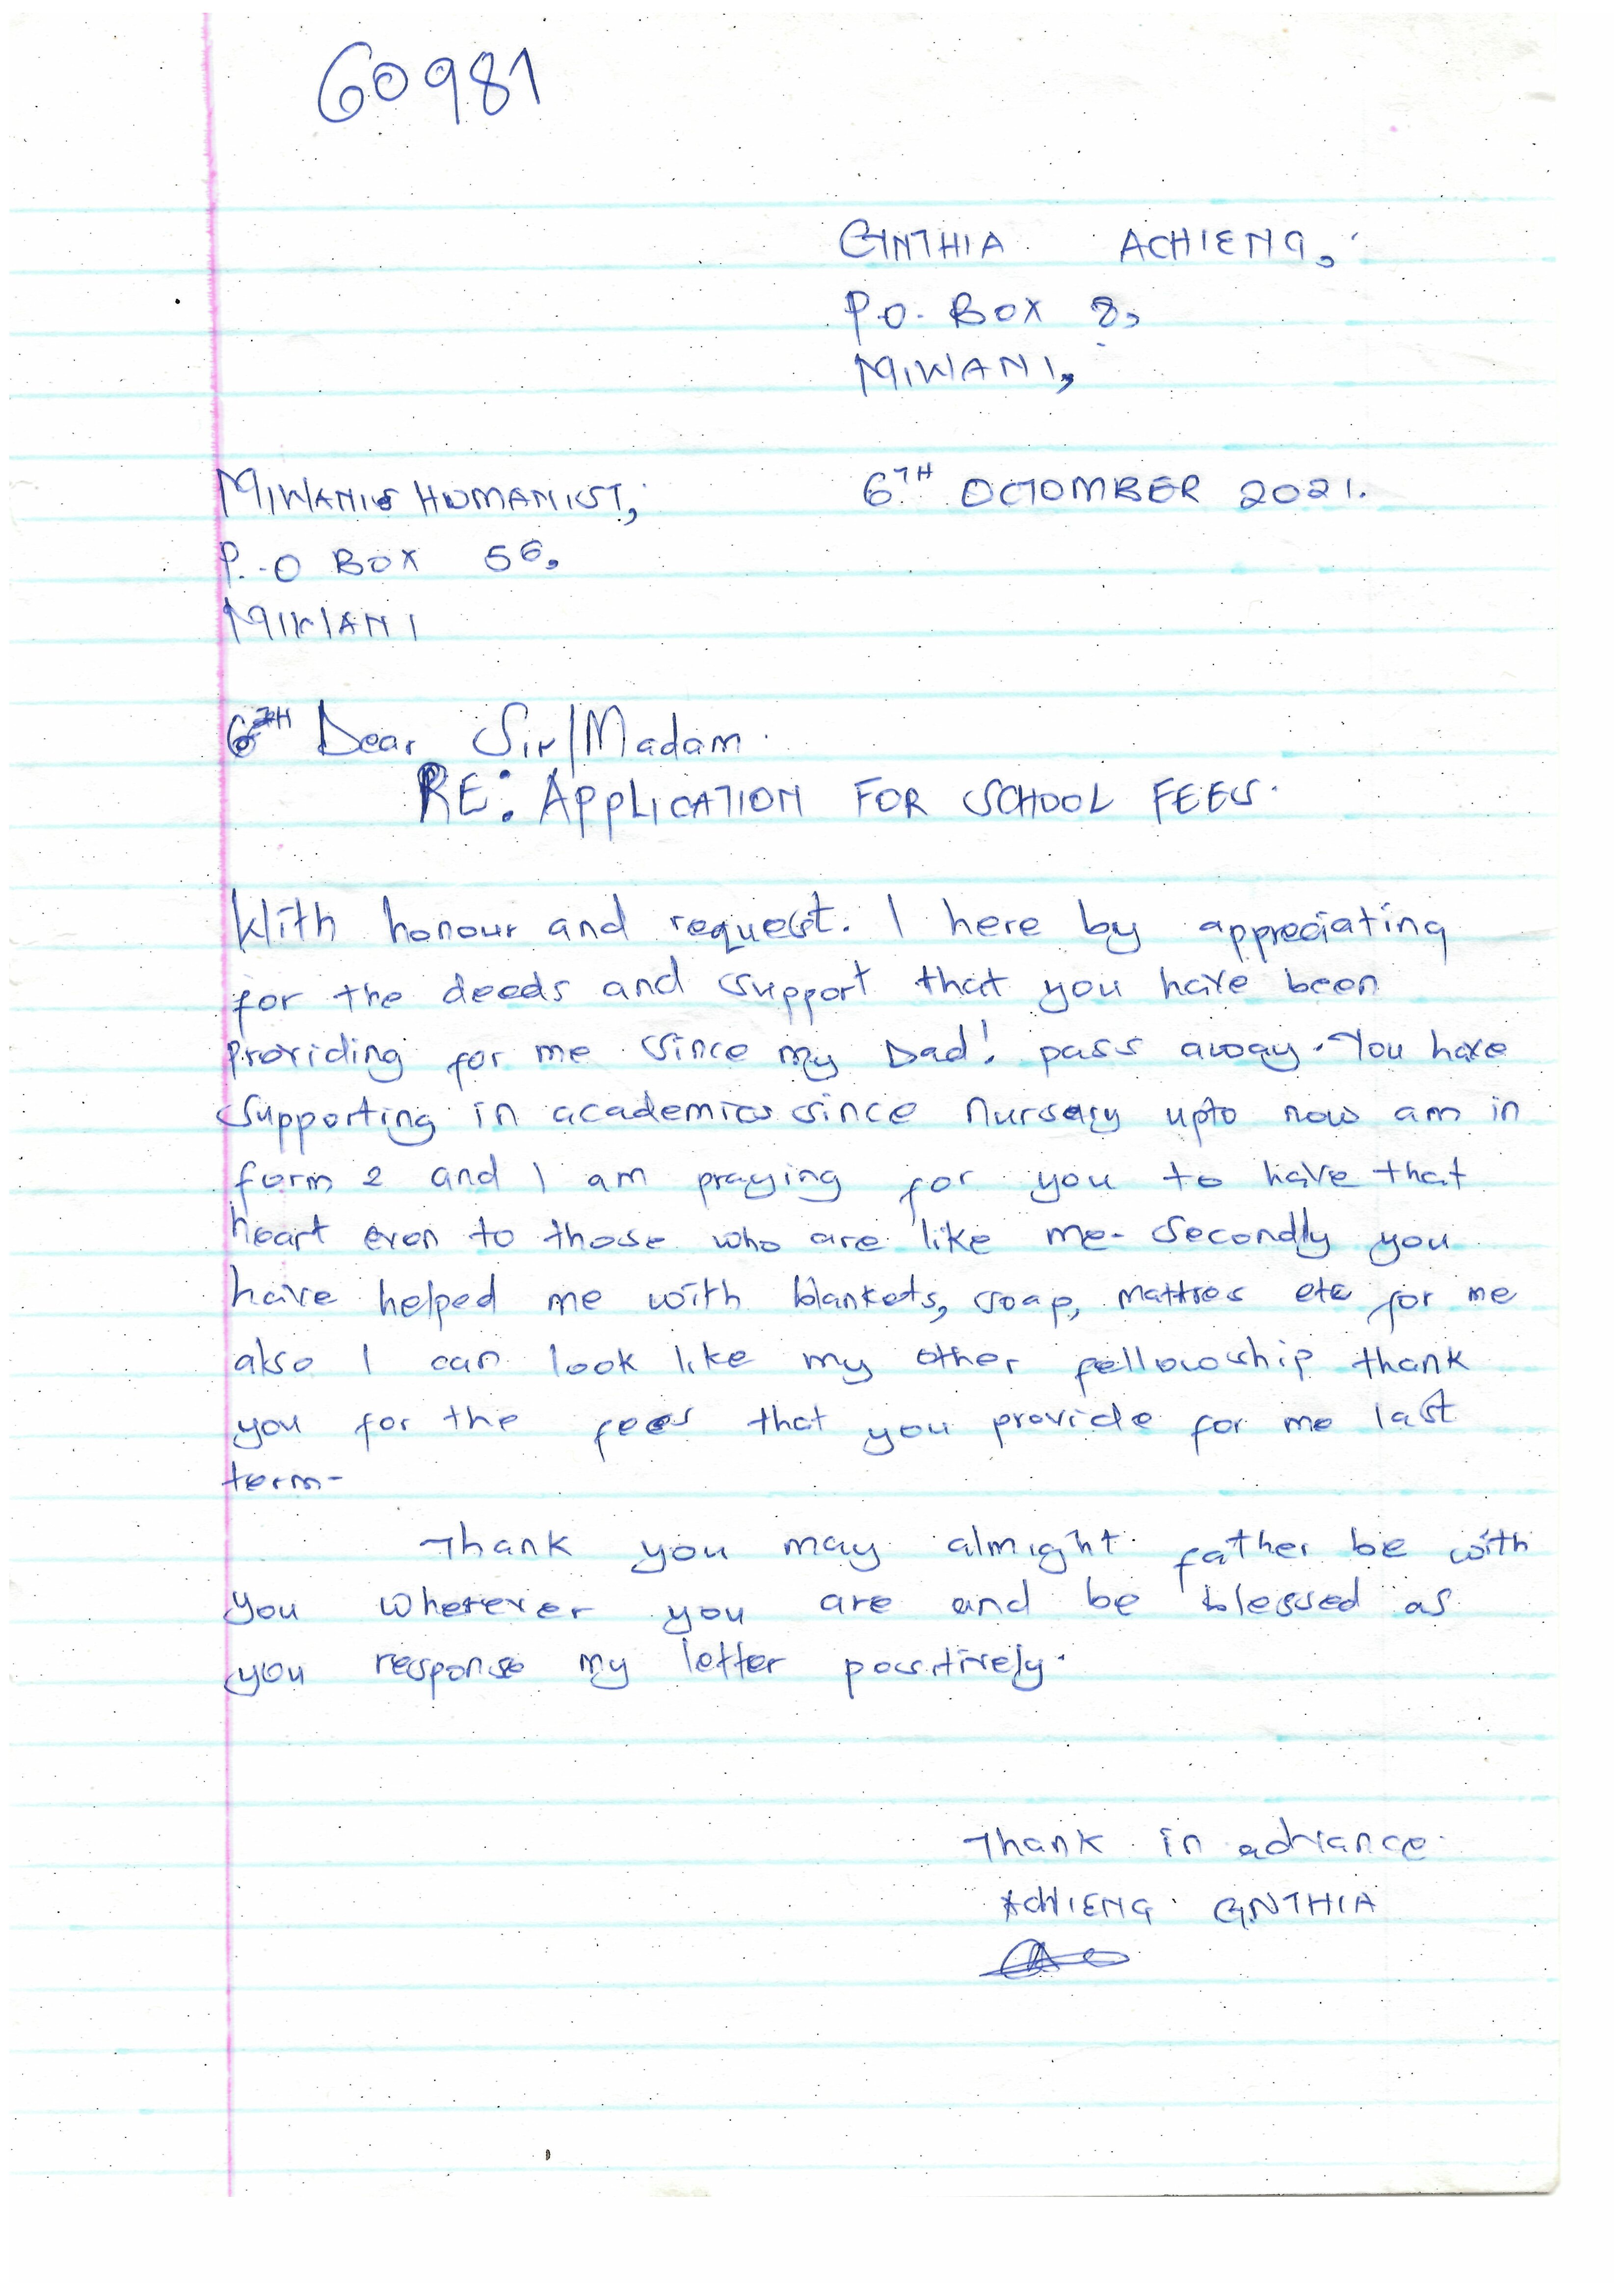 60981
CYNTHIA ACHIENG,
P.O. BOX 8,
MIWANI,
MIWANI HUMANIST,
6TH OCTOMBER 2021.
P.O BOX 56,
MIWANI
6TH Dear Sir/Madam.
RE: APPLICATION FOR SCHOOL FEES.
With honour and request. I here by appreciating
for the deeds and support that you have been
providing for me since my Dad! pass away. You have
supporting in academics since nursery upto now am in
form 2 and I am praying for you to have that
heart even to those who are like me. Secondly you
have helped me with blankets, soap, mattres etc for me
also I can look like my other fellowship thank
you for the fees that you provide for me last
term-
Thank you may almight father be with
you wherever you are and be blessed as
you response my letter positively.
Thank in advance.
ACHIENG CYNTHIA